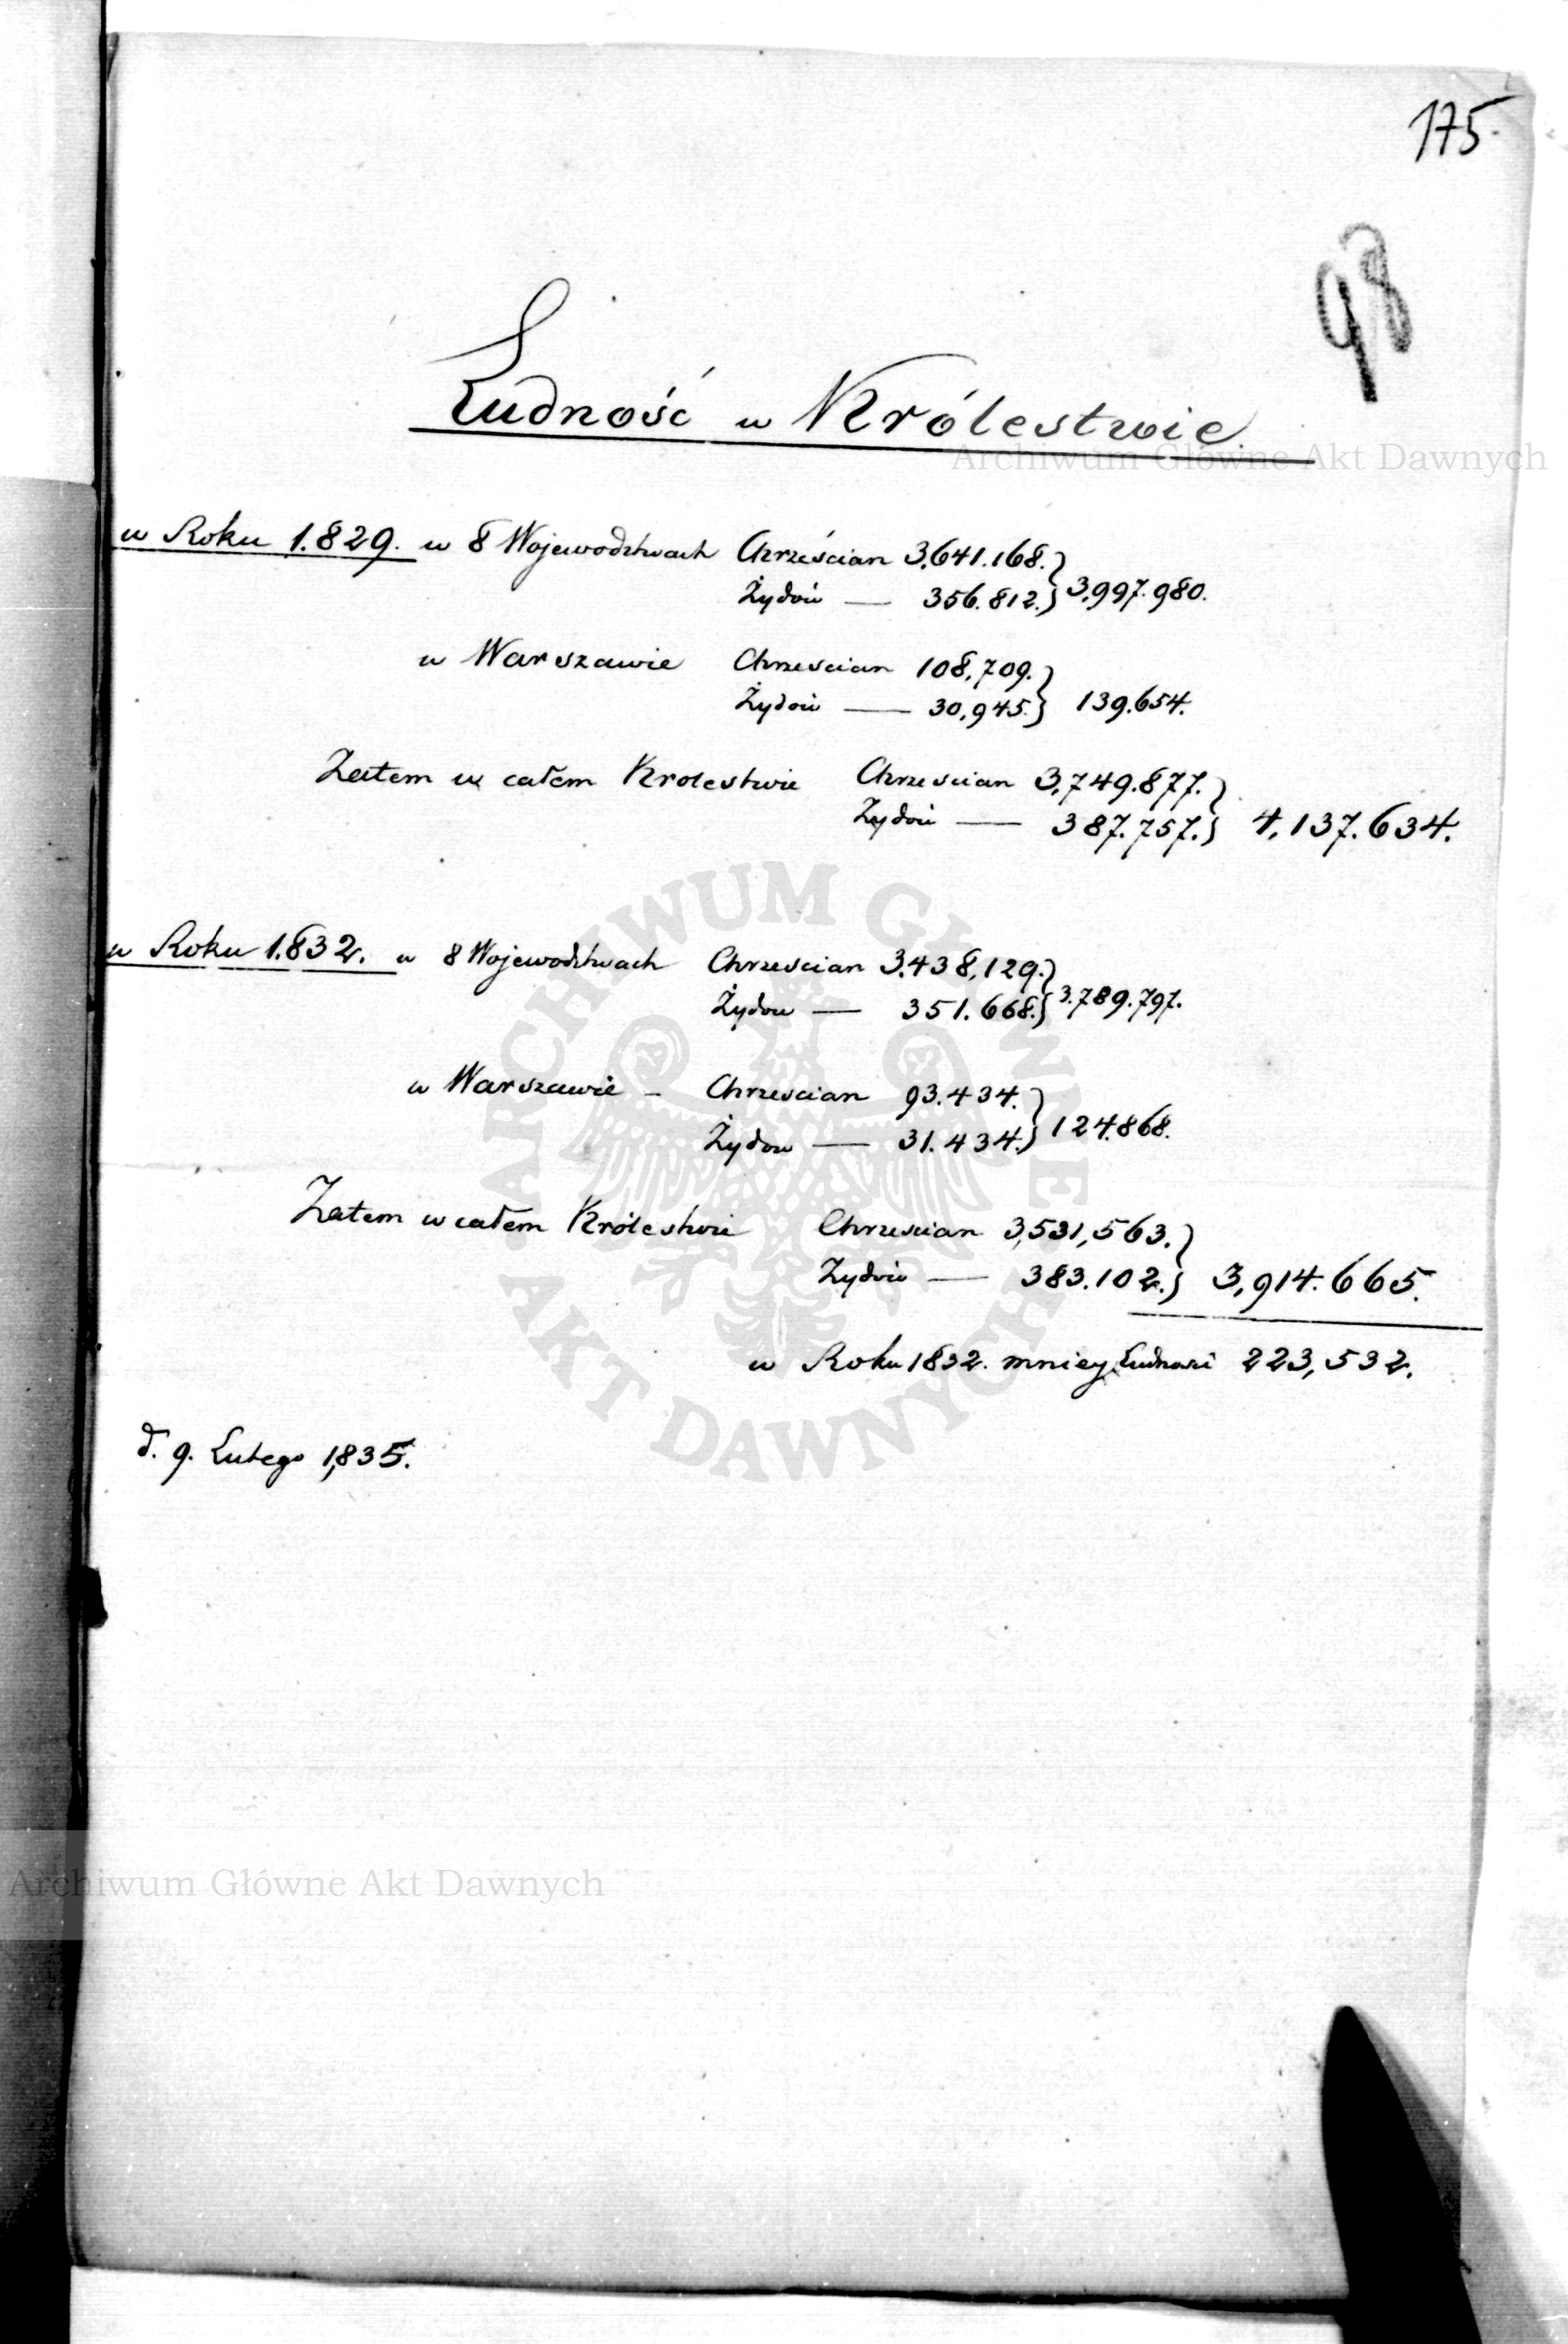 175.
98
Ludność w Królestwie.
Archiwum Główne Akt Dawnych
w Roku 1.829. w 8 Województwach Chrześcian 3.641.168.}
Żydów — 356.812.} 3.997.980.
w Warszawie Chrzescian 108,709.}
Żydów — 30,945.} 139.654.
Zatem w całem Krolestwie Chrzescian 3,749.877.}
Żydów — 387.757.} 4,137.634.
w Roku 1.832. w 8 Wojewodztwach Chrzescian 3.438,129.}
Żydow — 351.668.} 3.789.797.
w Warszawie – Chrzescian 93.434.}
Żydow — 31.434.} 124.868.
Zatem w całem Królestwie Chrzescian 3,531,563.}
Żydów — 383.102.} 3,914.665.
w Roku 1832. mniey Ludnosci 223,532.
d. 9. Lutego 1,835.
ARCHIWUM GŁÓWNE AKT DAWNYCH
Archiwum Główne Akt Dawnych